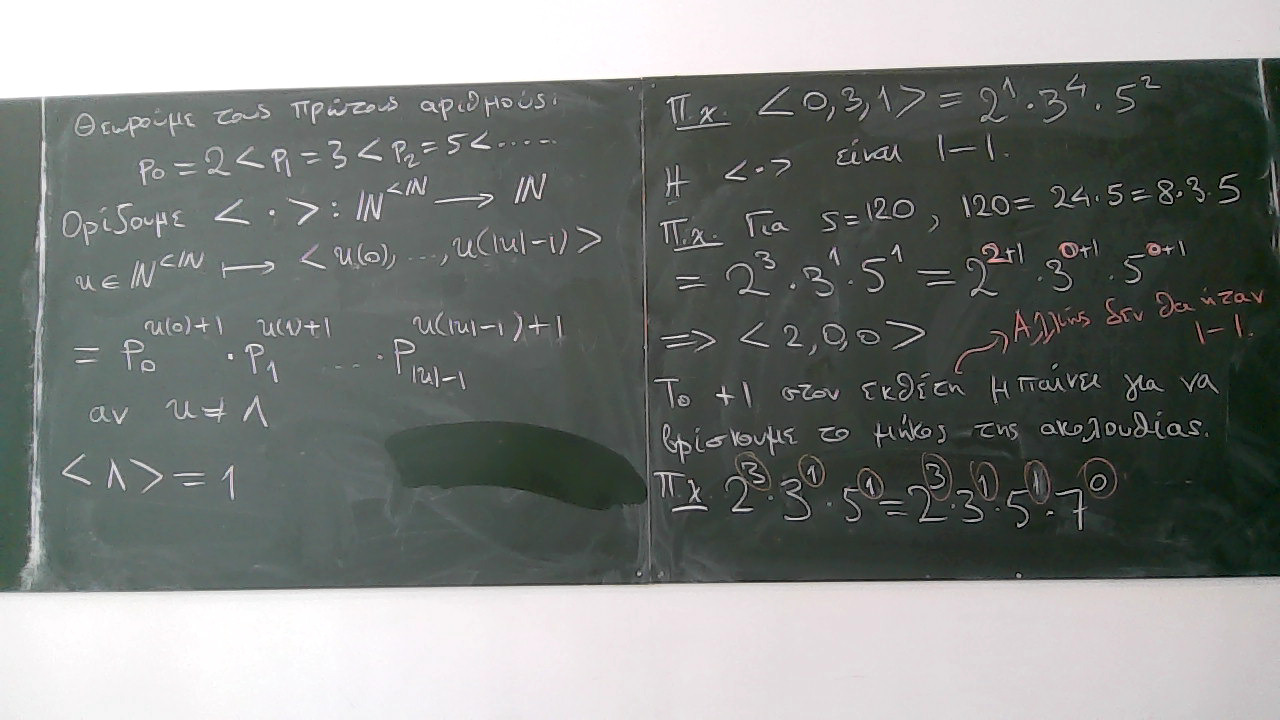 Θεωρούμε τους πρώτους αριθμούς:
p₀ = 2 < p₁ = 3 < p₂ = 5 < .....
Ορίζουμε < · > : ℕ^{<ℕ} ⟶ ℕ
u ∈ ℕ^{<ℕ} ⟼ < u(0), ..., u(|u|-1) >
= p₀^{u(0)+1} · p₁^{u(1)+1} ... · p_{|u|-1}^{u(|u|-1)+1}
αν u ≠ Λ
< Λ > = 1
Π.χ. < 0, 3, 1 > = 2¹ · 3⁴ · 5²
Η < · > είναι 1-1.
Π.χ. Για s = 120 , 120 = 24 · 5 = 8 · 3 · 5
= 2³ · 3¹ · 5¹ = 2^{2+1} · 3^{0+1} · 5^{0+1}
⟹ < 2, 0, 0 >
Αλλιώς δεν θα ήταν
1-1.
Το +1 στον εκθέτη μπαίνει για να
βρίσκουμε το μήκος της ακολουθίας.
Πχ 2³ · 3¹ · 5¹ = 2³ · 3¹ · 5¹ · 7⁰